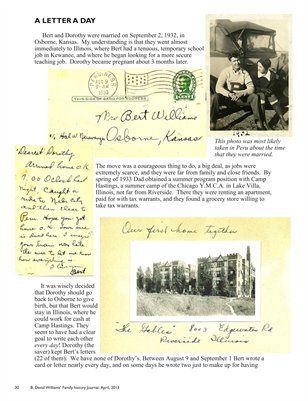 A LETTER A DAY
Bert and Dorothy were married on September 2, 1932, in
Osborne, Kansas. My understanding is that they went almost
immediately to Illinois, where Bert had a tenuous, temporary school
job in Kewanee, and where he began looking for a more secure
teaching job. Dorothy became pregnant about 3 months later.
THIS SIDE OF CARD IS FOR ADDRESS
Mrs Bert Williams
Osborne, Kansas
1932
This photo was most likely
taken in Peru about the time
that they were married.
Dearest Dorothy
Arrived home O.K.
9:00 O'clock last
night. Caught a
ride to
and then
Peru. Hope you got
home O.K.
Bert
The move was a courageous thing to do, a big deal, as jobs were
extremely scarce, and they were far from family and close friends. By
spring of 1933 Dad obtained a summer program position with Camp
Hastings, a summer camp of the Chicago Y.M.C.A. in Lake Villa,
Illinois, not far from Riverside. There they were renting an apartment,
paid for with tax warrants, and they found a grocery store willing to
take tax warrants.
Our first home together
The "Gables" 8003 Edgewater Rd
Riverside Illinois
It was wisely decided
that Dorothy should go
back to Osborne to give
birth, but that Bert would
stay in Illinois, where he
could work for cash at
Camp Hastings. They
seem to have had a clear
goal to write each other
every day! Dorothy (the
saver) kept Bert's letters
(22 of them). We have none of Dorothy's. Between August 9 and September 1 Bert wrote a
card or letter nearly every day, and on some days he wrote two just to make up for having
30 B. David Williams' Family history Journal: April, 2013